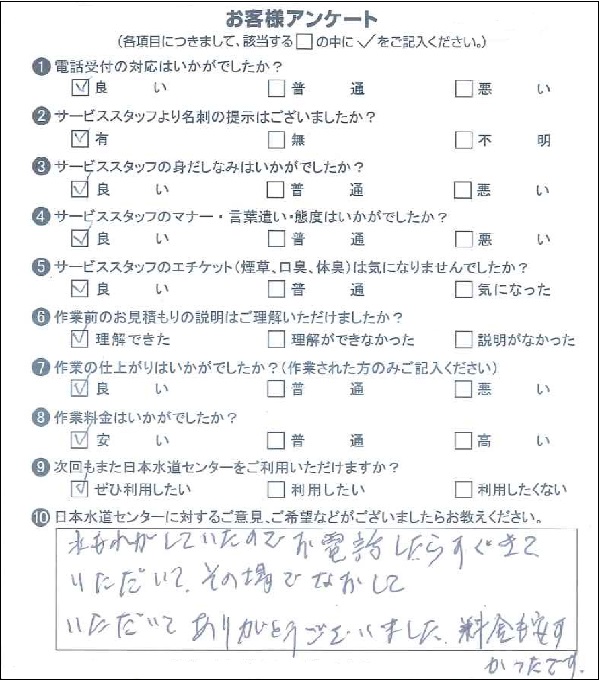 お客様アンケート
(各項目につきまして、該当する□の中に✓をご記入ください。)
❶ 電話受付の対応はいかがでしたか?
☑ 良 い □ 普 通 □ 悪 い
❷ サービススタッフより名刺の提示はございましたか?
☑ 有 □ 無 □ 不 明
❸ サービススタッフの身だしなみはいかがでしたか?
☑ 良 い □ 普 通 □ 悪 い
❹ サービススタッフのマナー・言葉遣い・態度はいかがでしたか?
☑ 良 い □ 普 通 □ 悪 い
❺ サービススタッフのエチケット(煙草、口臭、体臭)は気になりませんでしたか?
☑ 良 い □ 普 通 □ 気になった
❻ 作業前のお見積もりの説明はご理解いただけましたか?
☑ 理解できた □ 理解ができなかった □ 説明がなかった
❼ 作業の仕上がりはいかがでしたか?(作業された方のみご記入ください)
☑ 良 い □ 普 通 □ 悪 い
❽ 作業料金はいかがでしたか?
☑ 安 い □ 普 通 □ 高 い
❾ 次回もまた日本水道センターをご利用いただけますか?
☑ ぜひ利用したい □ 利用したい □ 利用したくない
❿ 日本水道センターに対するご意見、ご希望などがございましたらお教えください。
水もれがしていたのでお電話したらすぐきて
いただいて、その場でなおして
いただいてありがとうございました。料金も安す
かったです。